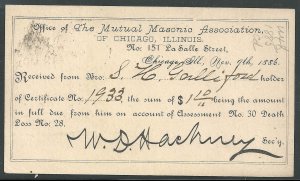 Office of The Mutual Masonic Association,
OF CHICAGO, ILLINOIS.
No: 151 La Salle Street,
Chicago, Ill., Nov. 9th, 1886.
Received from Bro. S. H. holder
of Certificate No. 1933, the sum of $1 10/ being the amount
in full due from him on account of Assessment No. 30 Death
Loss No: 28.
W. D. Hackney Sec'y.